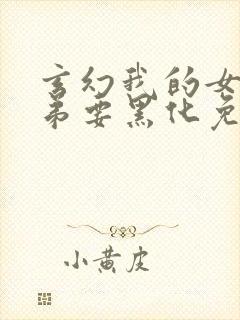 玄幻我的女
弟要黑化免
小黄皮